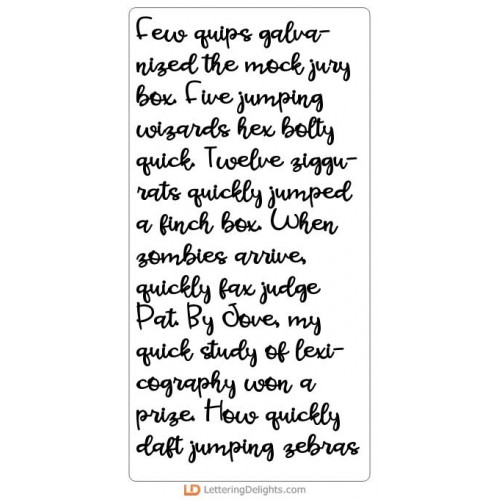 Few quips galva-
nized the mock jury
box. Five jumping
wizards hex bolty
quick. Twelve ziggu-
rats quickly jumped
a finch box. When
zombies arrive,
quickly fax judge
Pat. By Jove, my
quick study of lexi-
cography won a
prize. How quickly
daft jumping zebras
LD LetteringDelights.com